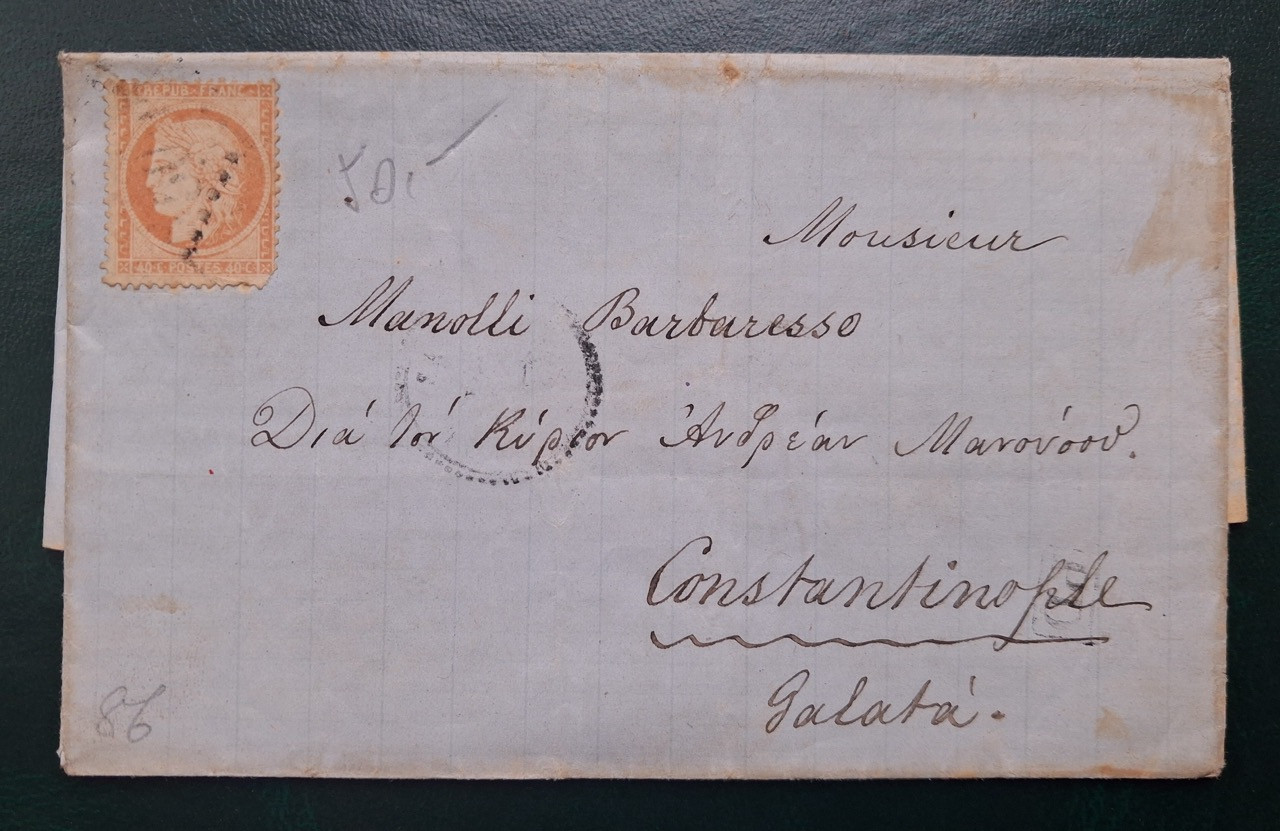 REPUB · FRANC
40 · C POSTES 40 · C
Monsieur
Manolli Barbaresso
Διά τόν Κύριον Ἀνδρέαν Μανούσου.
Constantinople
Galatá.
86